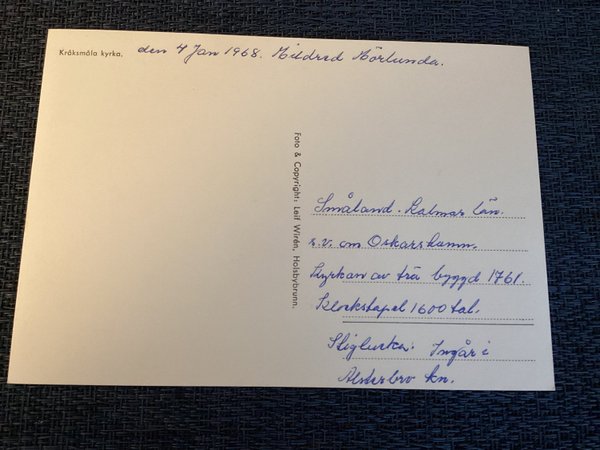 Kråksmåla kyrka.
den 4 Jan 1968. Mildred Mörlunda.
Foto & Copyright: Leif Wirén, Holsbybrunn.
Småland. Kalmar län.
s.v. om Oskarshamn.
Kyrkan av trä byggd 1761.
Klockstapel 1600 tal.
Stiglucka. Ingår i
Alsterbro kn.